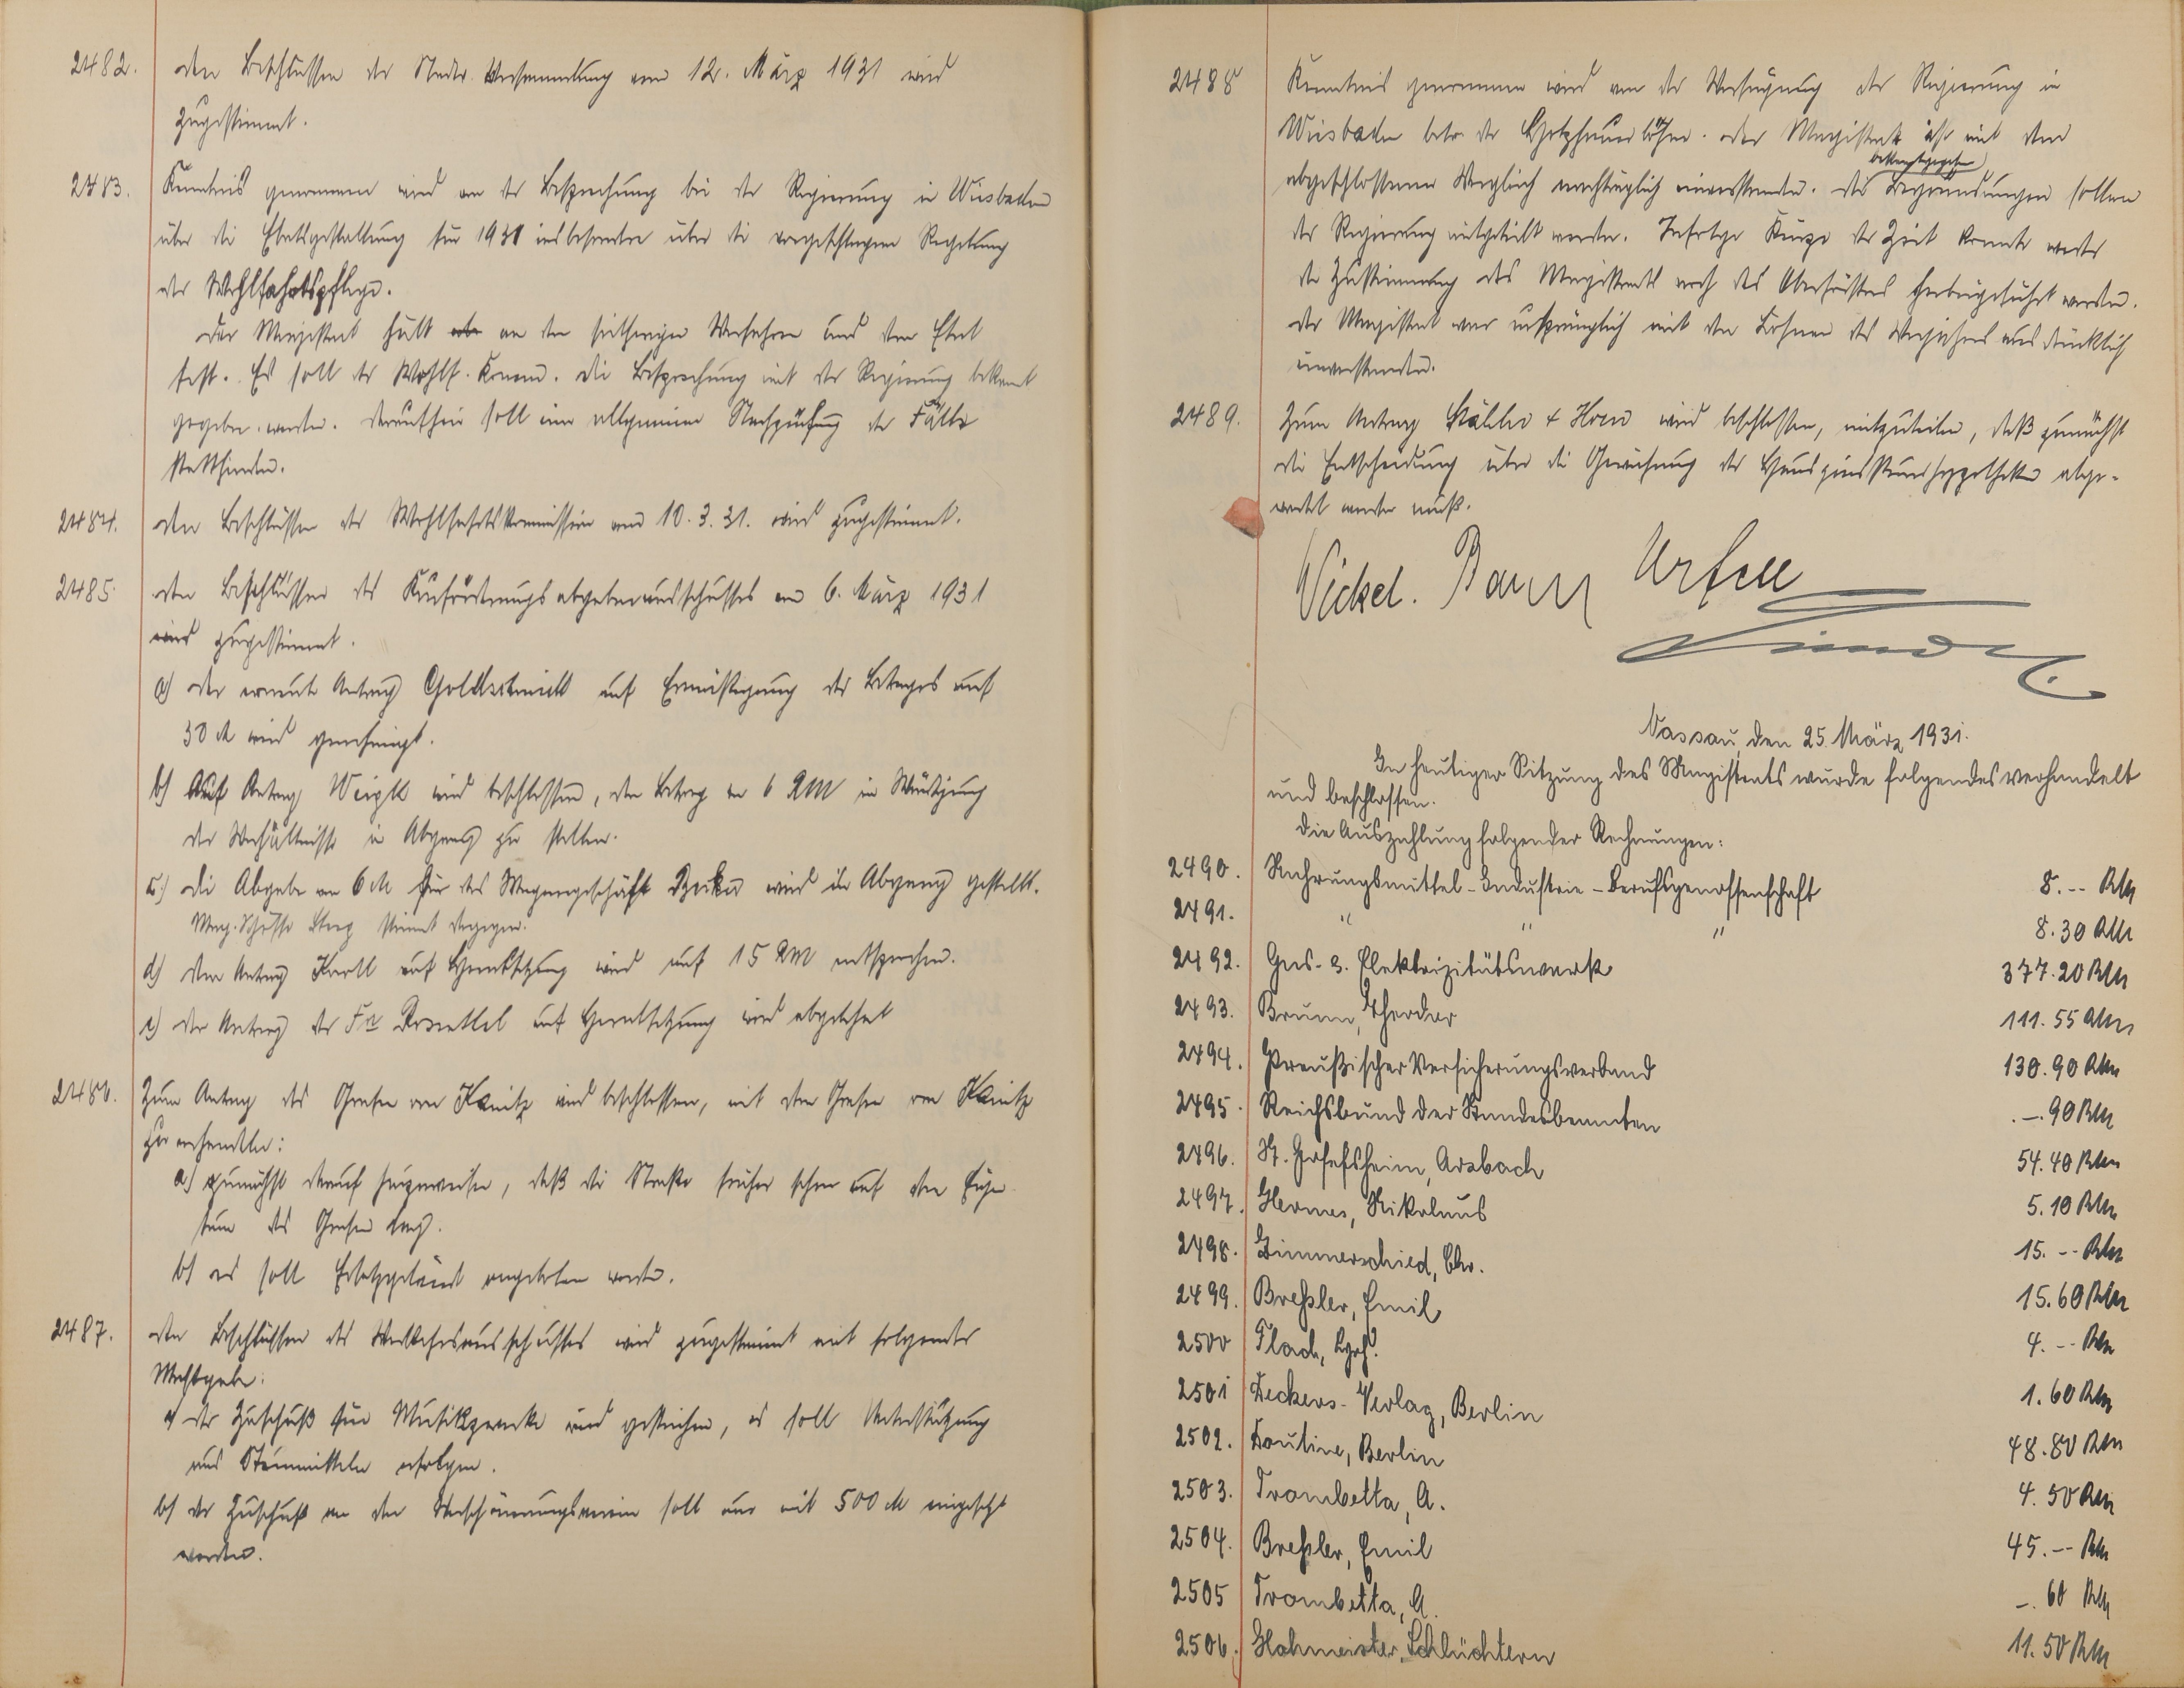 2482. Den Beschlüssen der Stadtv. Versammlung vom 12. März 1931 wird
zugestimmt.
2483. Kenntnis genommen wird von der Besprechung bei der Regierung in Wiesbaden
über die Etatsgestaltung für 1931 insbesondere über die vorgeschlagene Regelung
der Wohlfahrtspflege.
Der Magistrat hält an dem seitherigen Verfahren und dem Etat
fest. Es soll der Wohlf. Komm. die Besprechung mit der Regierung bekannt
gegeben werden. Daraufhin soll eine allgemeine Nachprüfung der Fälle
stattfinden.
2484. Den Beschlüssen der Wohlfahrtskommission vom 10.3.31. wird zugestimmt.
2485. Den Beschlüssen des Kurförderungsabgabeausschusses vom 6. März 1931
wird zugestimmt.
a) Der erneute Antrag Goldschmidt auf Ermäßigung des Betrages auf
30 M wird genehmigt.
b) Auf Antrag wird beschlossen, den Betrag von 6 RM in Würdigung
der Verhältnisse in Abgang zu stellen.
c) Die Abgabe von 6 M für das Wagengeschäft wird in Abgang gestellt.
Mag. Schöffe stimmt dagegen.
d) Dem Antrag auf Herabsetzung wird auf 15 RM entsprochen.
e) Der Antrag der Fa Rosenthal auf Herabsetzung wird abgelehnt
2486. Zum Antrag des Grafen von Kanitz wird beschlossen, mit dem Grafen von Kanitz
zu verhandeln:
a) zunächst darauf hinzuweisen, daß die Straße früher schon auf dem Eigen
tum des Grafen lag.
b) es soll Ersatzgelände angeboten werden.
2487. Den Beschlüssen des Verkehrsausschusses wird zugestimmt mit folgender
Maßgabe:
a) der Zuschuß für Musikzwecke wird gestrichen, es soll Unterstützung
aus erfolgen.
b) der Zuschuß an den Verschönerungsverein soll nur mit 500 M eingesetzt
werden.
2488 Kenntnis genommen wird von der Verfügung der Regierung in
Wiesbaden betr. der Holzhauerlöhne. Der Magistrat ist mit dem
abgeschlossenen Vergleich nachträglich einverstanden. Die Begründungen sollen
der Regierung mitgeteilt werden. Infolge Kürze der Zeit konnte weder
die Zustimmung des Magistrats noch des Oberförsters herbeigeführt werden.
Der Magistrat war ursprünglich mit den Löhnen des Vorjahres ausdrücklich
einverstanden.
2489. Zum Antrag Stähler & Horn wird beschlossen, mitzuteilen, daß zunächst
die Entscheidung über die Gewährung der Hauszinssteuerhypotheken abge-
wartet werden muß.
Nickel. Urfell
Nassau, den 25. März 1931.
In heutiger Sitzung des Magistrats wurde folgendes verhandelt
und beschlossen.
Die Auszahlung folgender Rechnungen:
2490. Nahrungsmittel-Industrie-Berufsgenossenschaft 8.-- RM
2491. " " " 8.30 RM
2492. Gas- u. Elektrizitätswerk 377.20 RM
2493. Brunn, Theodor 111.55 RM
2494. Preußischer Versicherungsverband 130.90 RM
2495. Reichsbund der Standesbeamten .-.90 RM
2496. St. Josefsheim, Arzbach 54.40 RM
2497. Hermes, Nikolaus 5.10 RM
2498. Zimmerschied, Chr. 15.-- RM
2499. Breßler, Emil 15.60 RM
2500 Flach, 4.-- RM
2501 Deckers-Verlag, Berlin 1.60 RM
2502. Berlin 48.80 RM
2503. Trombetta, A. 4.50 RM
2504. Breßler, Emil 45.-- RM
2505 Trombetta, A. -.60 RM
2506. Hohmeister, Schlüchtern 11.50 RM